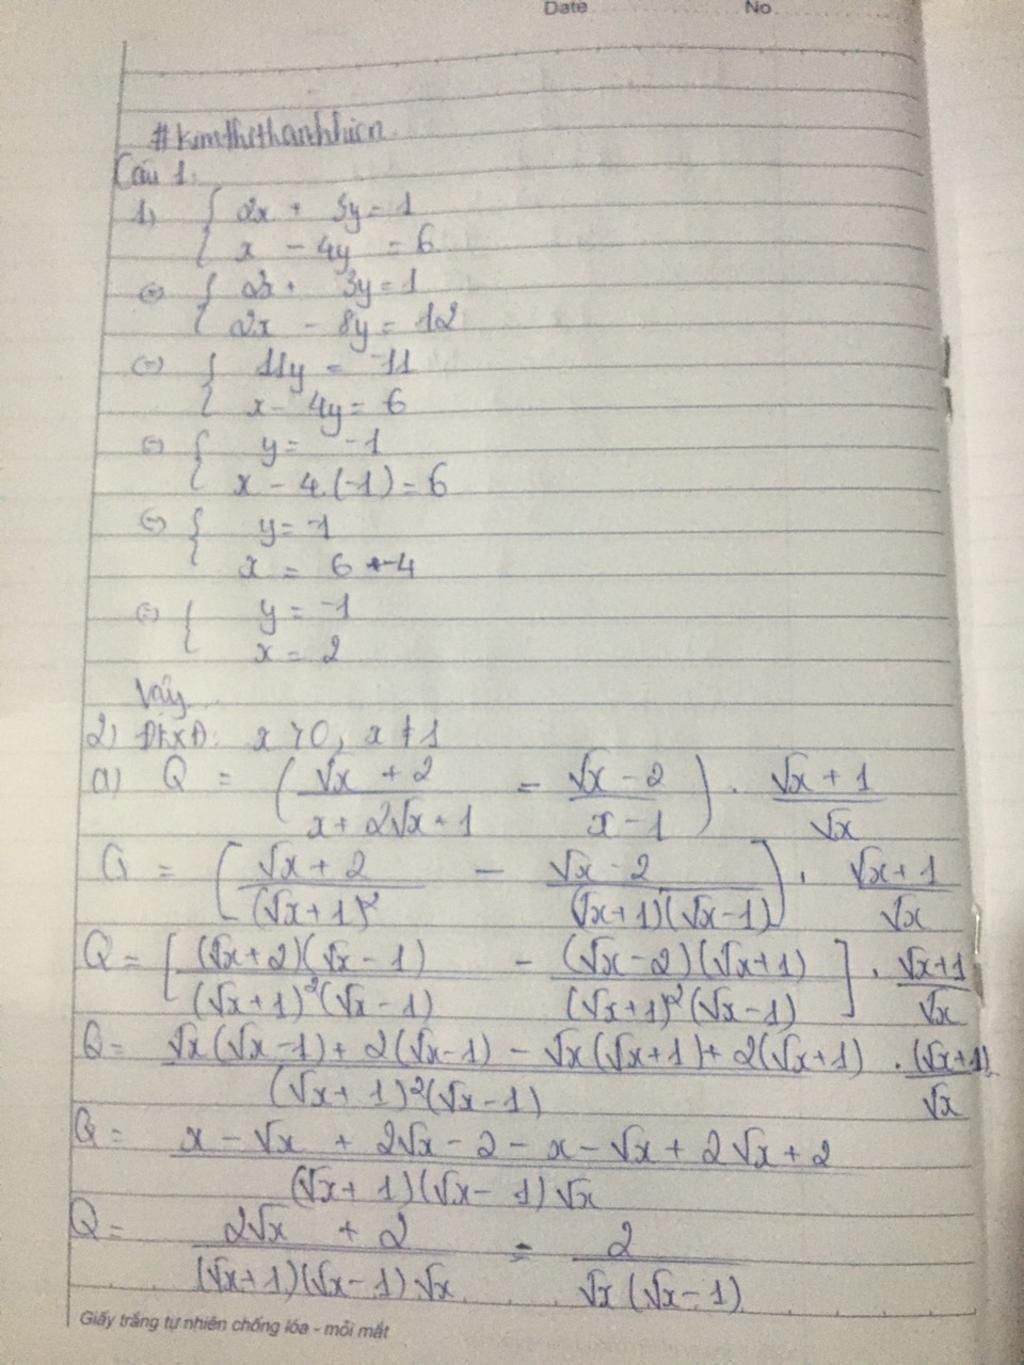 Date No
#kimthithanhhien
Câu 1.
1) { 2x + 3y = 1
x - 4y = 6
<=> { 2x + 3y = 1
2x - 8y = 12
<=> { 11y = -11
x - 4y = 6
<=> { y = -1
x - 4.(-1) = 6
<=> { y = -1
x = 6 + -4
<=> { y = -1
x = 2
Vậy
2) ĐKXĐ: x > 0, x ≠ 1
a) Q = ( (√x + 2)/(x + 2√x + 1) - (√x - 2)/(x - 1) ) . (√x + 1)/√x
Q = [ (√x + 2)/(√x + 1)² - (√x - 2)/((√x + 1)(√x - 1)) ] . (√x + 1)/√x
Q = [ (√x + 2)(√x - 1)/((√x + 1)²(√x - 1)) - (√x - 2)(√x + 1)/((√x + 1)²(√x - 1)) ] . (√x + 1)/√x
Q = (√x(√x - 1) + 2(√x - 1) - √x(√x + 1) + 2(√x + 1))/((√x + 1)²(√x - 1)) . (√x + 1)/√x
Q = (x - √x + 2√x - 2 - x - √x + 2√x + 2)/((√x + 1)(√x - 1)√x)
Q = (2√x + 2)/((√x + 1)(√x - 1)√x) = 2/(√x(√x - 1))
Giấy trắng tự nhiên chống lóa - mỏi mắt